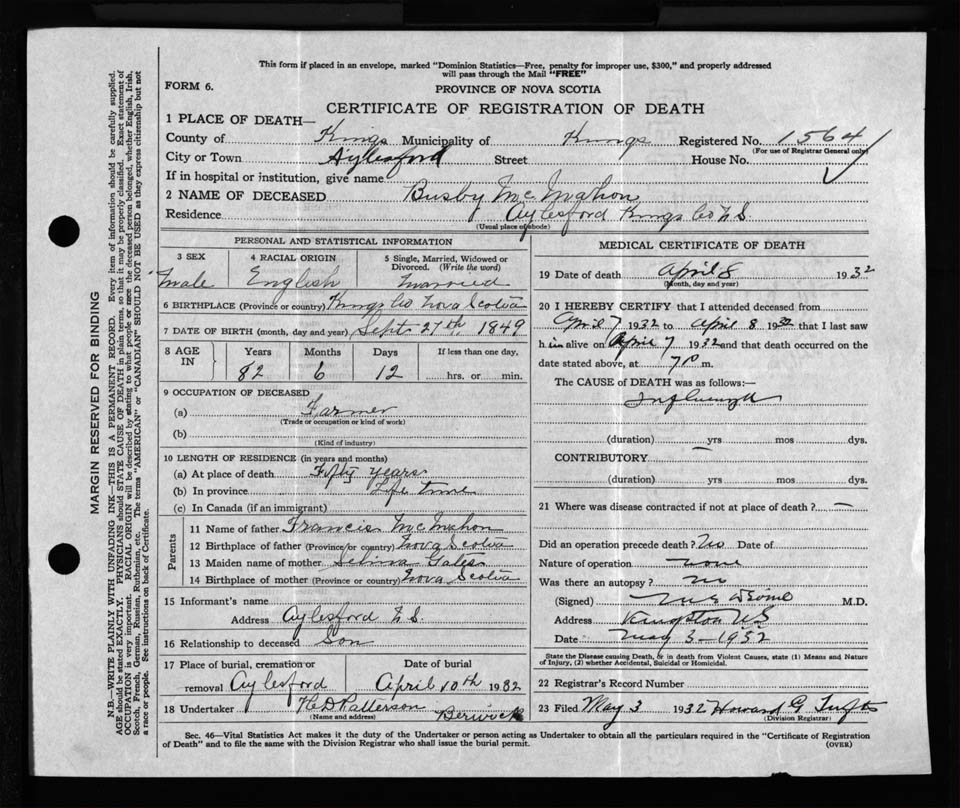 This form if placed in an envelope, marked "Dominion Statistics—Free, penalty for improper use, $300," and properly addressed
will pass through the Mail "FREE"
FORM 6.
PROVINCE OF NOVA SCOTIA
CERTIFICATE OF REGISTRATION OF DEATH
1 PLACE OF DEATH—
County of Kings Municipality of Kings Registered No. 1564
(For use of Registrar General only)
City or Town Aylesford Street House No.
If in hospital or institution, give name
2 NAME OF DECEASED Busby McMahon
Residence Aylesford Kings Co N.S.
(Usual place of abode)
PERSONAL AND STATISTICAL INFORMATION
3 SEX 4 RACIAL ORIGIN 5 Single, Married, Widowed or
Divorced. (Write the word)
Male English Married
6 BIRTHPLACE (Province or country) Kings Co Nova Scotia
7 DATE OF BIRTH (month, day and year) Sept 27th 1849
8 AGE IN Years Months Days If less than one day.
82 6 12 hrs. or min.
9 OCCUPATION OF DECEASED
(a) Farmer
(Trade or occupation or kind of work)
(b)
(Kind of industry)
10 LENGTH OF RESIDENCE (in years and months)
(a) At place of death Fifty years
(b) In province Life time
(c) In Canada (if an immigrant)
Parents
11 Name of father Francis McMahon
12 Birthplace of father (Province or country) Nova Scotia
13 Maiden name of mother Selina Gates
14 Birthplace of mother (Province or country) Nova Scotia
15 Informant's name
Address Aylesford N.S.
16 Relationship to deceased Son
17 Place of burial, cremation or Date of burial
removal Aylesford April 10th 1932
18 Undertaker H D Patterson Berwick
(Name and address)
MEDICAL CERTIFICATE OF DEATH
19 Date of death April 8 1932
(Month, day and year)
20 I HEREBY CERTIFY that I attended deceased from
April 7 1932 to April 8 1932 that I last saw
h im alive on April 7 1932 and that death occurred on the
date stated above, at 7 P m.
The CAUSE OF DEATH was as follows:—
Influenza
(duration) yrs mos dys.
CONTRIBUTORY
(duration) yrs mos dys.
21 Where was disease contracted if not at place of death? —
Did an operation precede death? No Date of
Nature of operation none
Was there an autopsy? no
(Signed) M.D.
Address Kingston N S
Date May 3 - 1932
State the Disease causing Death, or in death from Violent Causes, state (1) Means and Nature
of Injury, (2) whether Accidental, Suicidal or Homicidal.
22 Registrar's Record Number
23 Filed May 3 1932 Howard G Tufts
(Division Registrar)
Sec. 46—Vital Statistics Act makes it the duty of the Undertaker or person acting as Undertaker to obtain all the particulars required in the "Certificate of Registration
of Death" and to file the same with the Division Registrar who shall issue the burial permit.
(OVER)
MARGIN RESERVED FOR BINDING
N.B.—WRITE PLAINLY WITH UNFADING INK—THIS IS A PERMANENT RECORD. Every item of information should be carefully supplied.
AGE should be stated EXACTLY. PHYSICIANS should STATE CAUSE OF DEATH in plain terms, so that it may be properly classified. Exact statement of
OCCUPATION is very important. RACIAL ORIGIN will be described by stating to what people or race the deceased person belonged, whether English, Irish,
Scotch, French, German, Russian, Ruthenian, etc. The terms "AMERICAN" or "CANADIAN" SHOULD NOT BE USED as they express citizenship but not
a race or people. See instructions on back of Certificate.